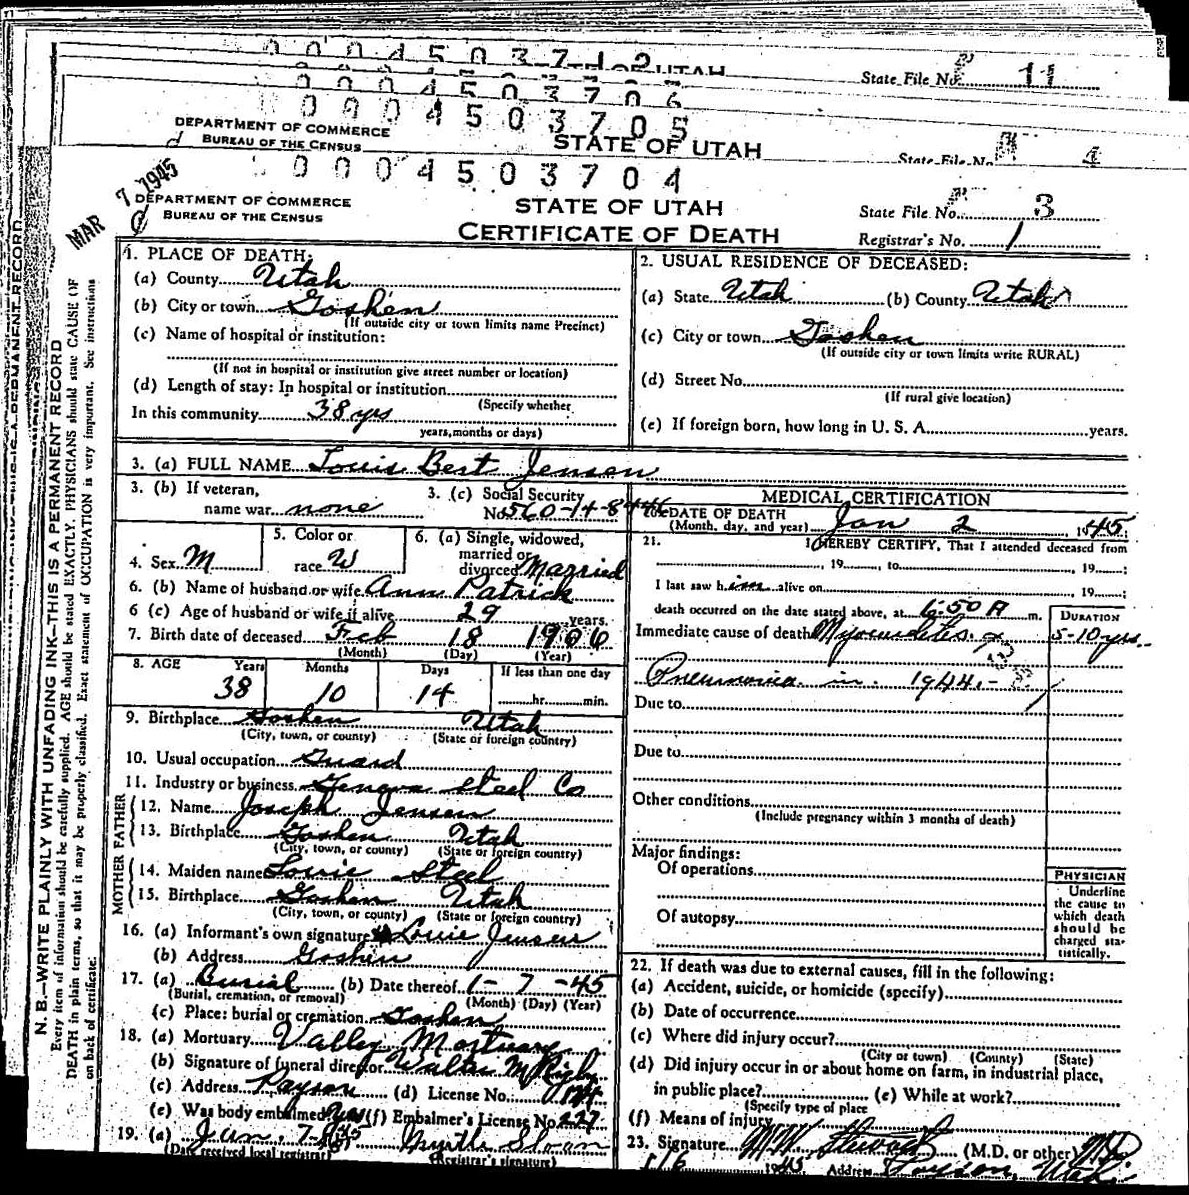 0 0 0 4 5 0 3 7 1 2
State File No. 11
0 0 0 4 5 0 3 7 0 6
0 0 0 4 5 0 3 7 0 5
DEPARTMENT OF COMMERCE
BUREAU OF THE CENSUS
STATE OF UTAH
State File No. 4
0 0 0 4 5 0 3 7 0 4
MAR 7 1945
DEPARTMENT OF COMMERCE
BUREAU OF THE CENSUS
STATE OF UTAH
CERTIFICATE OF DEATH
State File No. 3
Registrar's No. 1
N. B.—WRITE PLAINLY WITH UNFADING INK—THIS IS A PERMANENT RECORD
Every item of information should be carefully supplied. AGE should be stated EXACTLY. PHYSICIANS should state CAUSE OF
DEATH in plain terms, so that it may be properly classified. Exact statement of OCCUPATION is very important. See instructions
on back of certificate.
1. PLACE OF DEATH:
(a) County Utah
(b) City or town Goshen
(If outside city or town limits name Precinct)
(c) Name of hospital or institution:
(If not in hospital or institution give street number or location)
(d) Length of stay: In hospital or institution
(Specify whether
In this community 38 yrs
years, months or days)
2. USUAL RESIDENCE OF DECEASED:
(a) State Utah (b) County Utah
(c) City or town Goshen
(If outside city or town limits write RURAL)
(d) Street No.
(If rural give location)
(e) If foreign born, how long in U. S. A. years.
3. (a) FULL NAME Louis Bert Jensen
3. (b) If veteran,
name war none
3. (c) Social Security
No. 560-14-8
4. Sex M
5. Color or
race W
6. (a) Single, widowed,
married or
divorced Married
6. (b) Name of husband or wife Ann Patrick
6 (c) Age of husband or wife if alive 29 years.
7. Birth date of deceased Feb 18 1906
(Month) (Day) (Year)
8. AGE Years Months Days If less than one day
38 10 14 hr. min.
9. Birthplace Goshen Utah
(City, town, or county) (State or foreign country)
10. Usual occupation Guard
11. Industry or business Geneva Steel Co
FATHER
12. Name Joseph Jensen
13. Birthplace Goshen Utah
(City, town, or county) (State or foreign country)
MOTHER
14. Maiden name Lovie Steel
15. Birthplace Goshen Utah
(City, town, or county) (State or foreign country)
16. (a) Informant's own signature Lovie Jensen
(b) Address Goshen
17. (a) Burial (b) Date thereof 1- 7 -45
(Burial, cremation, or removal) (Month) (Day) (Year)
(c) Place: burial or cremation Goshen
18. (a) Mortuary Valley Mortuary
(b) Signature of funeral director Walter M Rigby
(c) Address Payson (d) License No.
(e) Was body embalmed yes (f) Embalmer's License No. 227
19. (a) Jan. 7 1945 Myrtle Sloan
(Date received local registrar) (Registrar's signature)
MEDICAL CERTIFICATION
20. DATE OF DEATH
(Month, day, and year) Jan 2 1945
21. I HEREBY CERTIFY, That I attended deceased from
, 19 , to , 19 ;
I last saw him alive on , 19 ;
death occurred on the date stated above, at 6:50 A m.
DURATION
Immediate cause of death Myocarditis 5-10 yrs.
Pneumonia in 1944.-
Due to
Due to
Other conditions
(Include pregnancy within 3 months of death)
Major findings:
Of operations
Of autopsy
PHYSICIAN
Underline
the cause to
which death
should be
charged sta-
tistically.
22. If death was due to external causes, fill in the following:
(a) Accident, suicide, or homicide (specify)
(b) Date of occurrence
(c) Where did injury occur?
(City or town) (County) (State)
(d) Did injury occur in or about home on farm, in industrial place,
in public place? (e) While at work?
(Specify type of place
(f) Means of injury
23. Signature M W Stewart (M.D. or other) MD
1/6 1945 Address Payson, Utah.